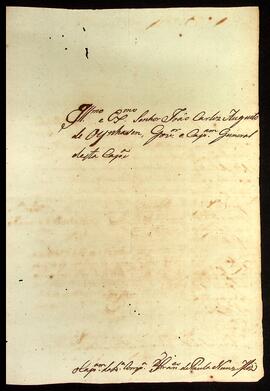 Illmo e Exmo Senhor João Carlos Augusto
de Oynhausen, Govor e Capam General
desta Capnia
Capam de Paula Nunz